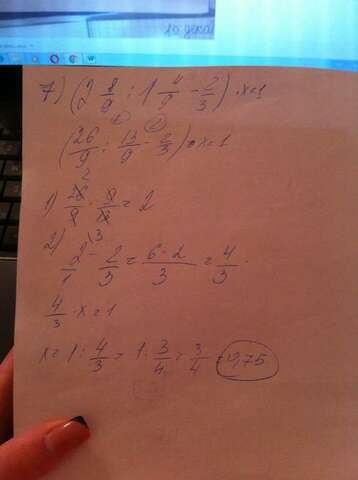 10 дека
7) (2 8/9 : 1 4/9 - 2/3) · x = 1
(26/9 : 13/9 - 2/3) · x = 1
1) 26/9 · 9/13 = 2
2) 2/1 - 2/3 = 6-2/3 = 4/3 .
4/3 · x = 1
x = 1 : 4/3 = 1 · 3/4 = 3/4 = 0,75